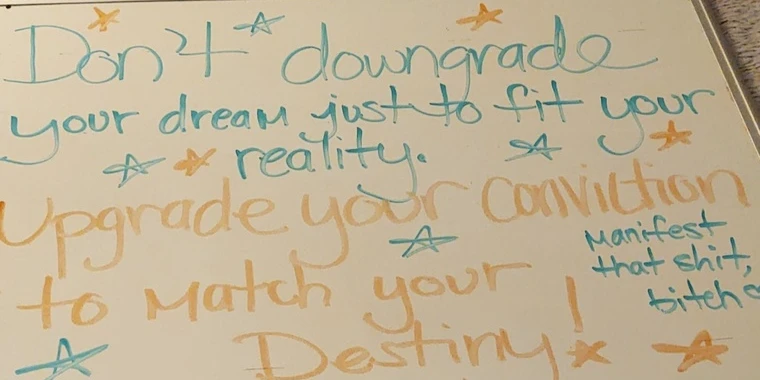 Don't downgrade
your dream just to fit your
reality.
Upgrade your conviction
to match your
Destiny!
Manifest
that shit,
bitch